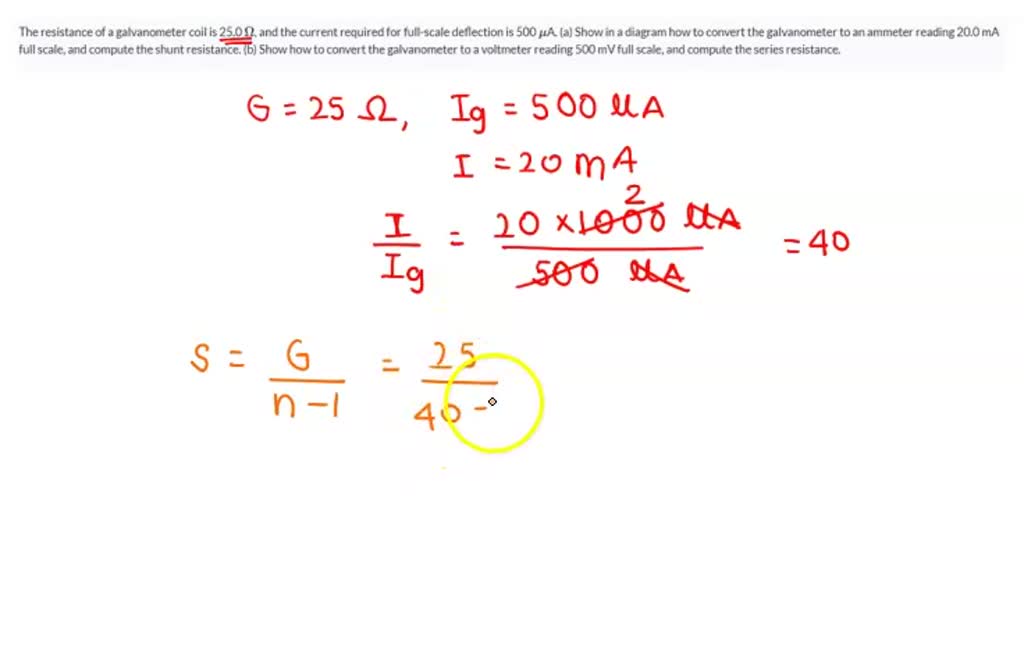 The resistance of a galvanometer coil is 25.0 Ω, and the current required for full-scale deflection is 500 μA. (a) Show in a diagram how to convert the galvanometer to an ammeter reading 20.0 mA
full scale, and compute the shunt resistance. (b) Show how to convert the galvanometer to a voltmeter reading 500 mV full scale, and compute the series resistance.
G = 25 Ω, Ig = 500 μA
I = 20 mA
I/Ig = 20 × 1000 μA / 500 μA = 40
2
S = G/n-1 = 25/40-